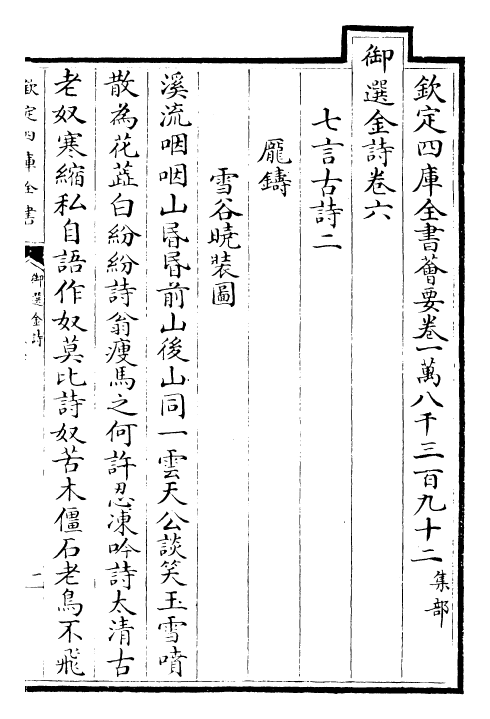 欽定四庫全書薈要卷一萬八千三百九十二 集部
御選金詩卷六
七言古詩二
龎鑄
雪谷曉裝圖
溪流咽咽山昏昏前山後山同一雲天公談笑玉雪噴
散為花蕋白紛紛詩翁瘦馬之何許忍凍吟詩太清古
老奴寒縮私自語作奴莫比詩奴苦木僵石老鳥不飛
欽定四庫全書
御選金詩